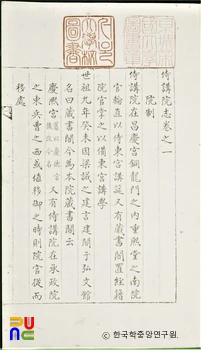 侍講院志卷之一
院制
侍講院在昌慶宮銅龍門之內重熙堂之南院
官輪直以侍東宮講筵又有藏書閣置經籍
院官掌之以備東宮講學
世祖九年癸未因梁誠之建言建閣于弘文館
名曰藏書閣今爲本院藏書閣云
慶熙宮 又有侍講院在承政院
之東兵曹之西或値移御之時則院官從而
移處
© 한국학중앙연구원.